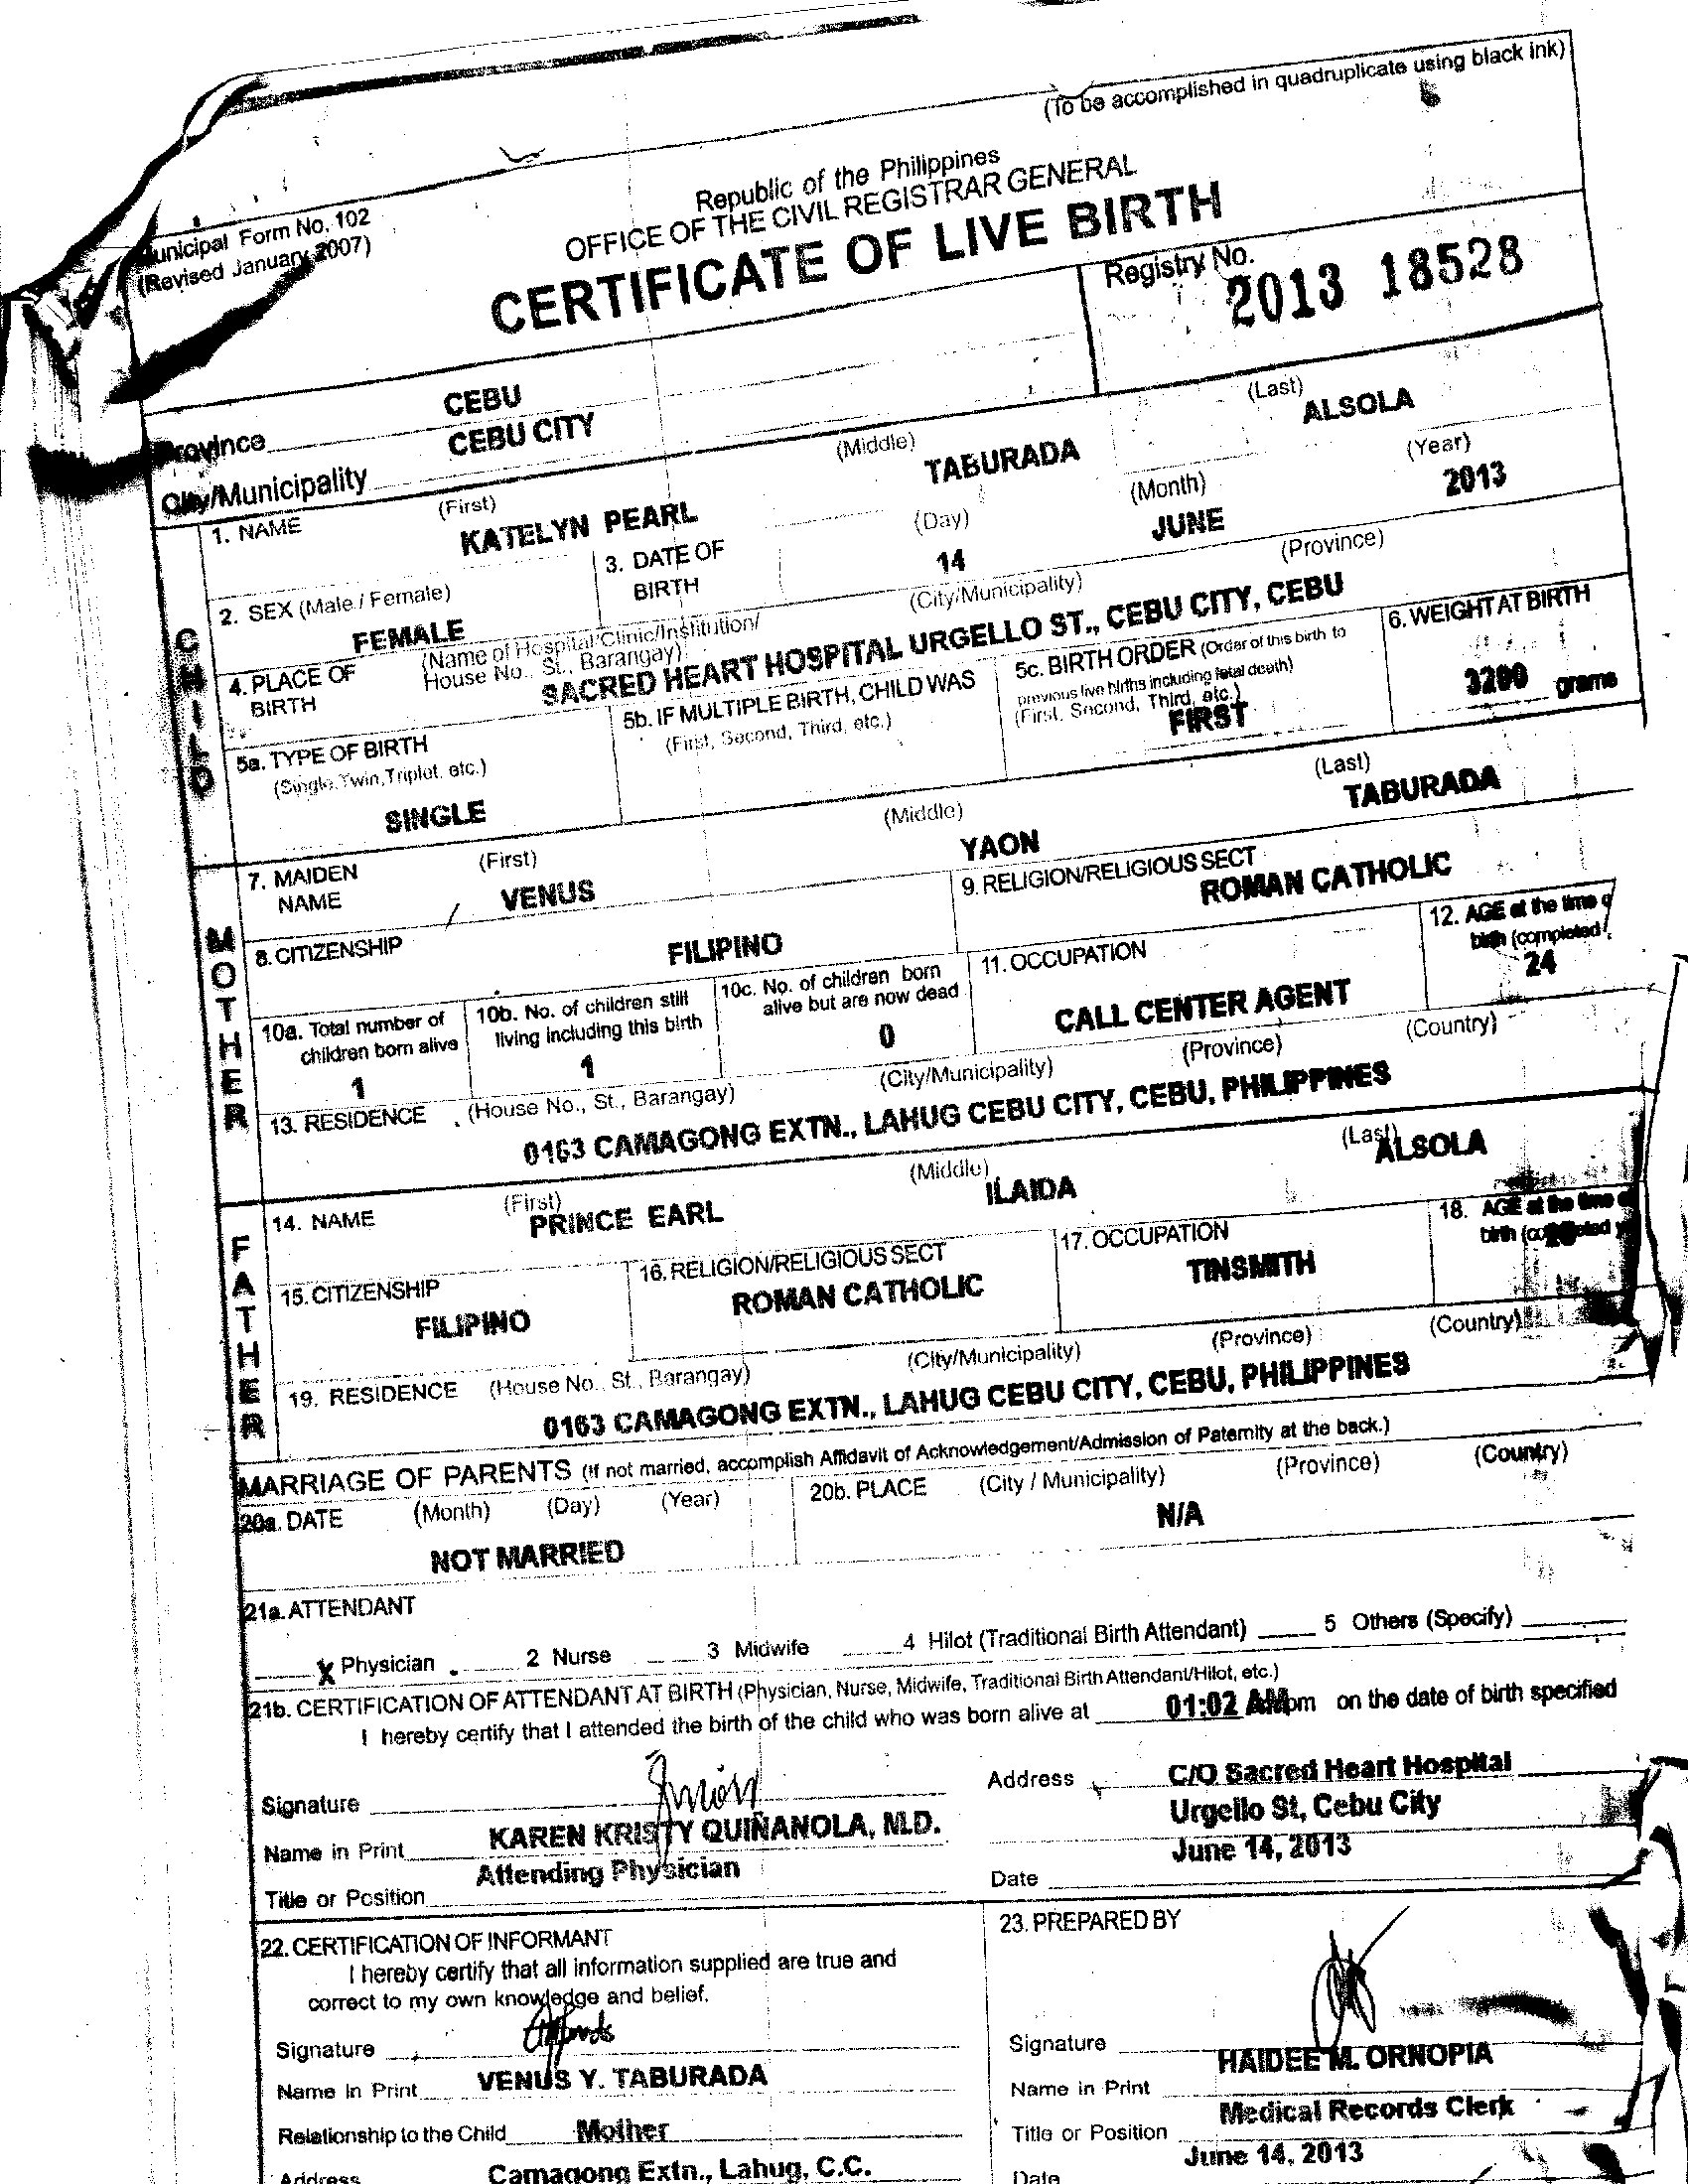 (To be accomplished in quadruplicate using black ink)
Municipal Form No. 102
(Revised January 2007)
Republic of the Philippines
OFFICE OF THE CIVIL REGISTRAR GENERAL
CERTIFICATE OF LIVE BIRTH
Registry No.
2013 18528
Province CEBU
City/Municipality CEBU CITY
CHILD
1. NAME (First) (Middle) (Last)
KATELYN PEARL TABURADA ALSOLA
2. SEX (Male / Female)
FEMALE
3. DATE OF BIRTH (Day) (Month) (Year)
14 JUNE 2013
4. PLACE OF BIRTH (Name of Hospital/Clinic/Institution/ House No., St., Barangay) (City/Municipality) (Province)
SACRED HEART HOSPITAL URGELLO ST., CEBU CITY, CEBU
5a. TYPE OF BIRTH
(Single, Twin, Triplet, etc.)
SINGLE
5b. IF MULTIPLE BIRTH, CHILD WAS
(First, Second, Third, etc.)
5c. BIRTH ORDER (Order of this birth to
previous live births including fetal death)
(First, Second, Third, etc.)
FIRST
6. WEIGHT AT BIRTH
grams
MOTHER
7. MAIDEN NAME (First) (Middle) (Last)
VENUS YAON TABURADA
8. CITIZENSHIP
FILIPINO
9. RELIGION/RELIGIOUS SECT
ROMAN CATHOLIC
10a. Total number of
children born alive
1
10b. No. of children still
living including this birth
1
10c. No. of children born
alive but are now dead
0
11. OCCUPATION
CALL CENTER AGENT
12. AGE at the time
birth (completed
24
13. RESIDENCE (House No., St., Barangay) (City/Municipality) (Province) (Country)
0163 CAMAGONG EXTN., LAHUG CEBU CITY, CEBU, PHILIPPINES
FATHER
14. NAME (First) (Middle) (Last)
PRINCE EARL ILAIDA ALSOLA
15. CITIZENSHIP
FILIPINO
16. RELIGION/RELIGIOUS SECT
ROMAN CATHOLIC
17. OCCUPATION
TINSMITH
18. AGE at the time
birth
19. RESIDENCE (House No., St., Barangay) (City/Municipality) (Province) (Country)
0163 CAMAGONG EXTN., LAHUG CEBU CITY, CEBU, PHILIPPINES
MARRIAGE OF PARENTS (If not married, accomplish Affidavit of Acknowledgement/Admission of Paternity at the back.)
20a. DATE (Month) (Day) (Year)
NOT MARRIED
20b. PLACE (City / Municipality) (Province) (Country)
N/A
21a. ATTENDANT
X Physician 2 Nurse 3 Midwife 4 Hilot (Traditional Birth Attendant) 5 Others (Specify)
21b. CERTIFICATION OF ATTENDANT AT BIRTH (Physician, Nurse, Midwife, Traditional Birth Attendant/Hilot, etc.)
I hereby certify that I attended the birth of the child who was born alive at 01:02 AM pm on the date of birth specified
Signature
Name in Print KAREN KRISTY QUIÑANOLA, M.D.
Title or Position Attending Physician
Address C/O Sacred Heart Hospital
Urgello St, Cebu City
Date June 14, 2013
22. CERTIFICATION OF INFORMANT
I hereby certify that all information supplied are true and
correct to my own knowledge and belief.
Signature
Name in Print VENUS Y. TABURADA
Relationship to the Child Mother
Address Camagong Extn., Lahug, C.C.
23. PREPARED BY
Signature
Name in Print HAIDEE M. ORNOPIA
Title or Position Medical Records Clerk
Date June 14, 2013